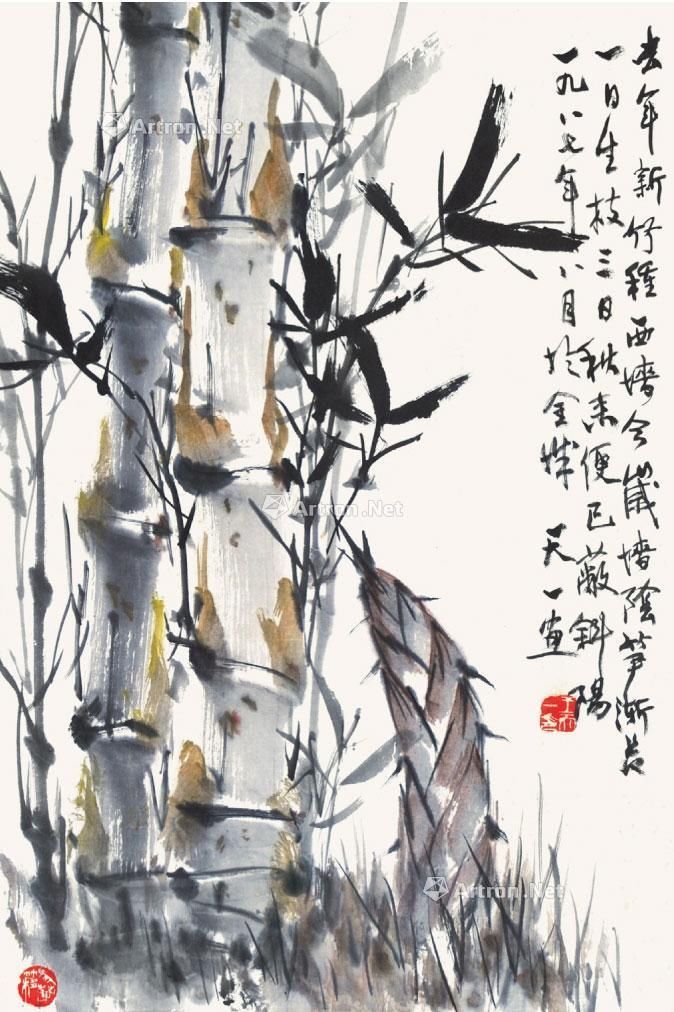 去年新竹種西墻今歲墻陰笋漸長
一日生枝三日秋未便已蔽斜陽
一九八七年八月於金城 天一画
Artron.Net
Artron.Net
Artron.Net
Artron.Net